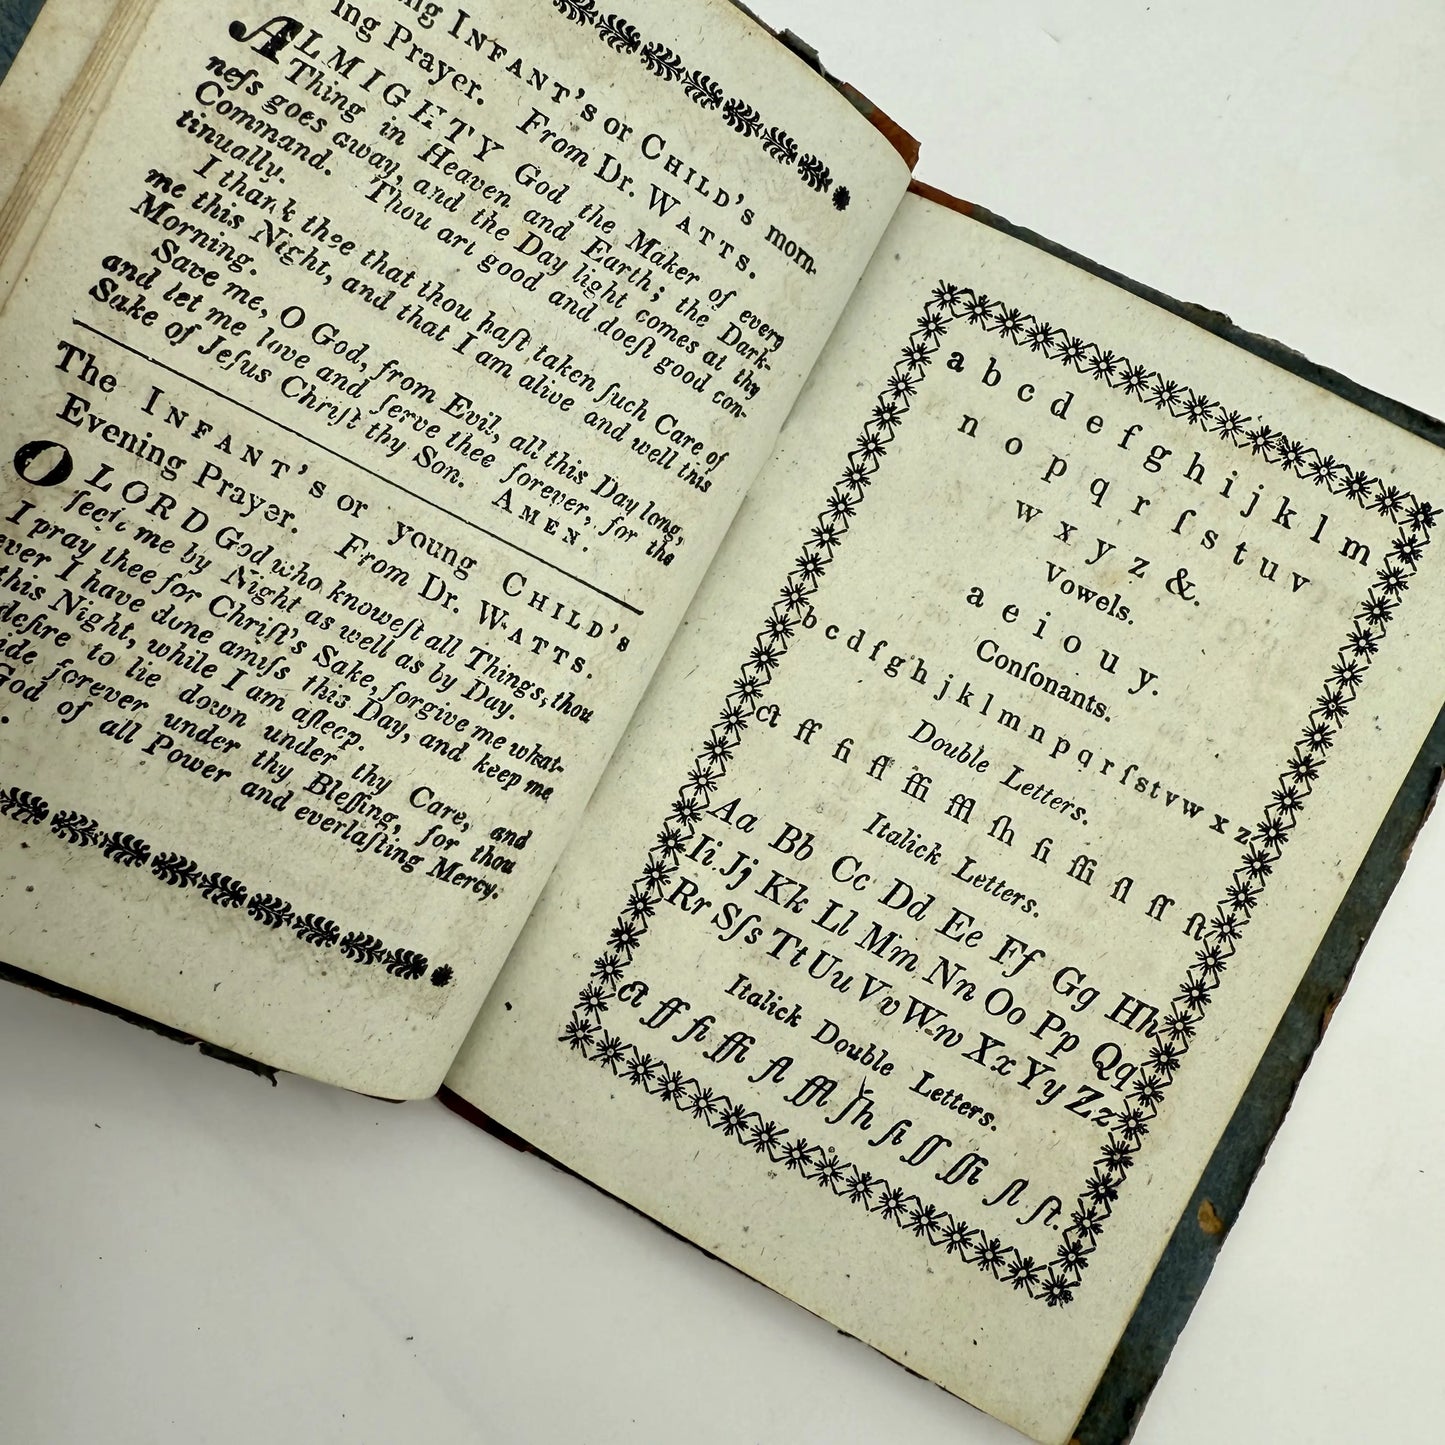 ing INFANT's or CHILD's morn-
ing Prayer. From Dr. WATTS.
ALMIGHTY God the Maker of every
Thing in Heaven and Earth; the Dark-
neſs goes away, and the Day light comes at thy
Command. Thou art good and doeſt good con-
tinually.
I thank thee that thou haſt taken ſuch Care of
me this Night, and that I am alive and well this
Morning.
Save me, O God, from Evil, all this Day long,
and let me love and ſerve thee forever, for the
Sake of Jeſus Chriſt thy Son. AMEN.
The INFANT's or young CHILD's
Evening Prayer. From Dr. WATTS.
O LORD God who knoweſt all Things, thou
ſeeſt me by Night as well as by Day.
I pray thee for Chriſt's Sake, forgive me what-
ever I have done amiſs this Day, and keep me
this Night, while I am aſleep.
deſire to lie down under thy Care, and
ide forever under thy Bleſſing, for thou
God of all Power and everlaſting Mercy.
a b c d e f g h i j k l m
n o p q r ſ s t u v
w x y z &.
Vowels.
a e i o u y.
Conſonants.
b c d f g h j k l m n p q r ſ s t v w x z
Double Letters.
ct ff fi fl ffi ffl ſh ſi ſſi ſl ſſ ſt
Italick Letters.
Aa Bb Cc Dd Ee Ff Gg Hh
Ii Jj Kk Ll Mm Nn Oo Pp Qq
Rr Sſs Tt Uu Vv Ww Xx Yy Zz
Italick Double Letters.
ct ff fi ffi fl ffl ſh ſi ſſ ſſi ſl ſt.